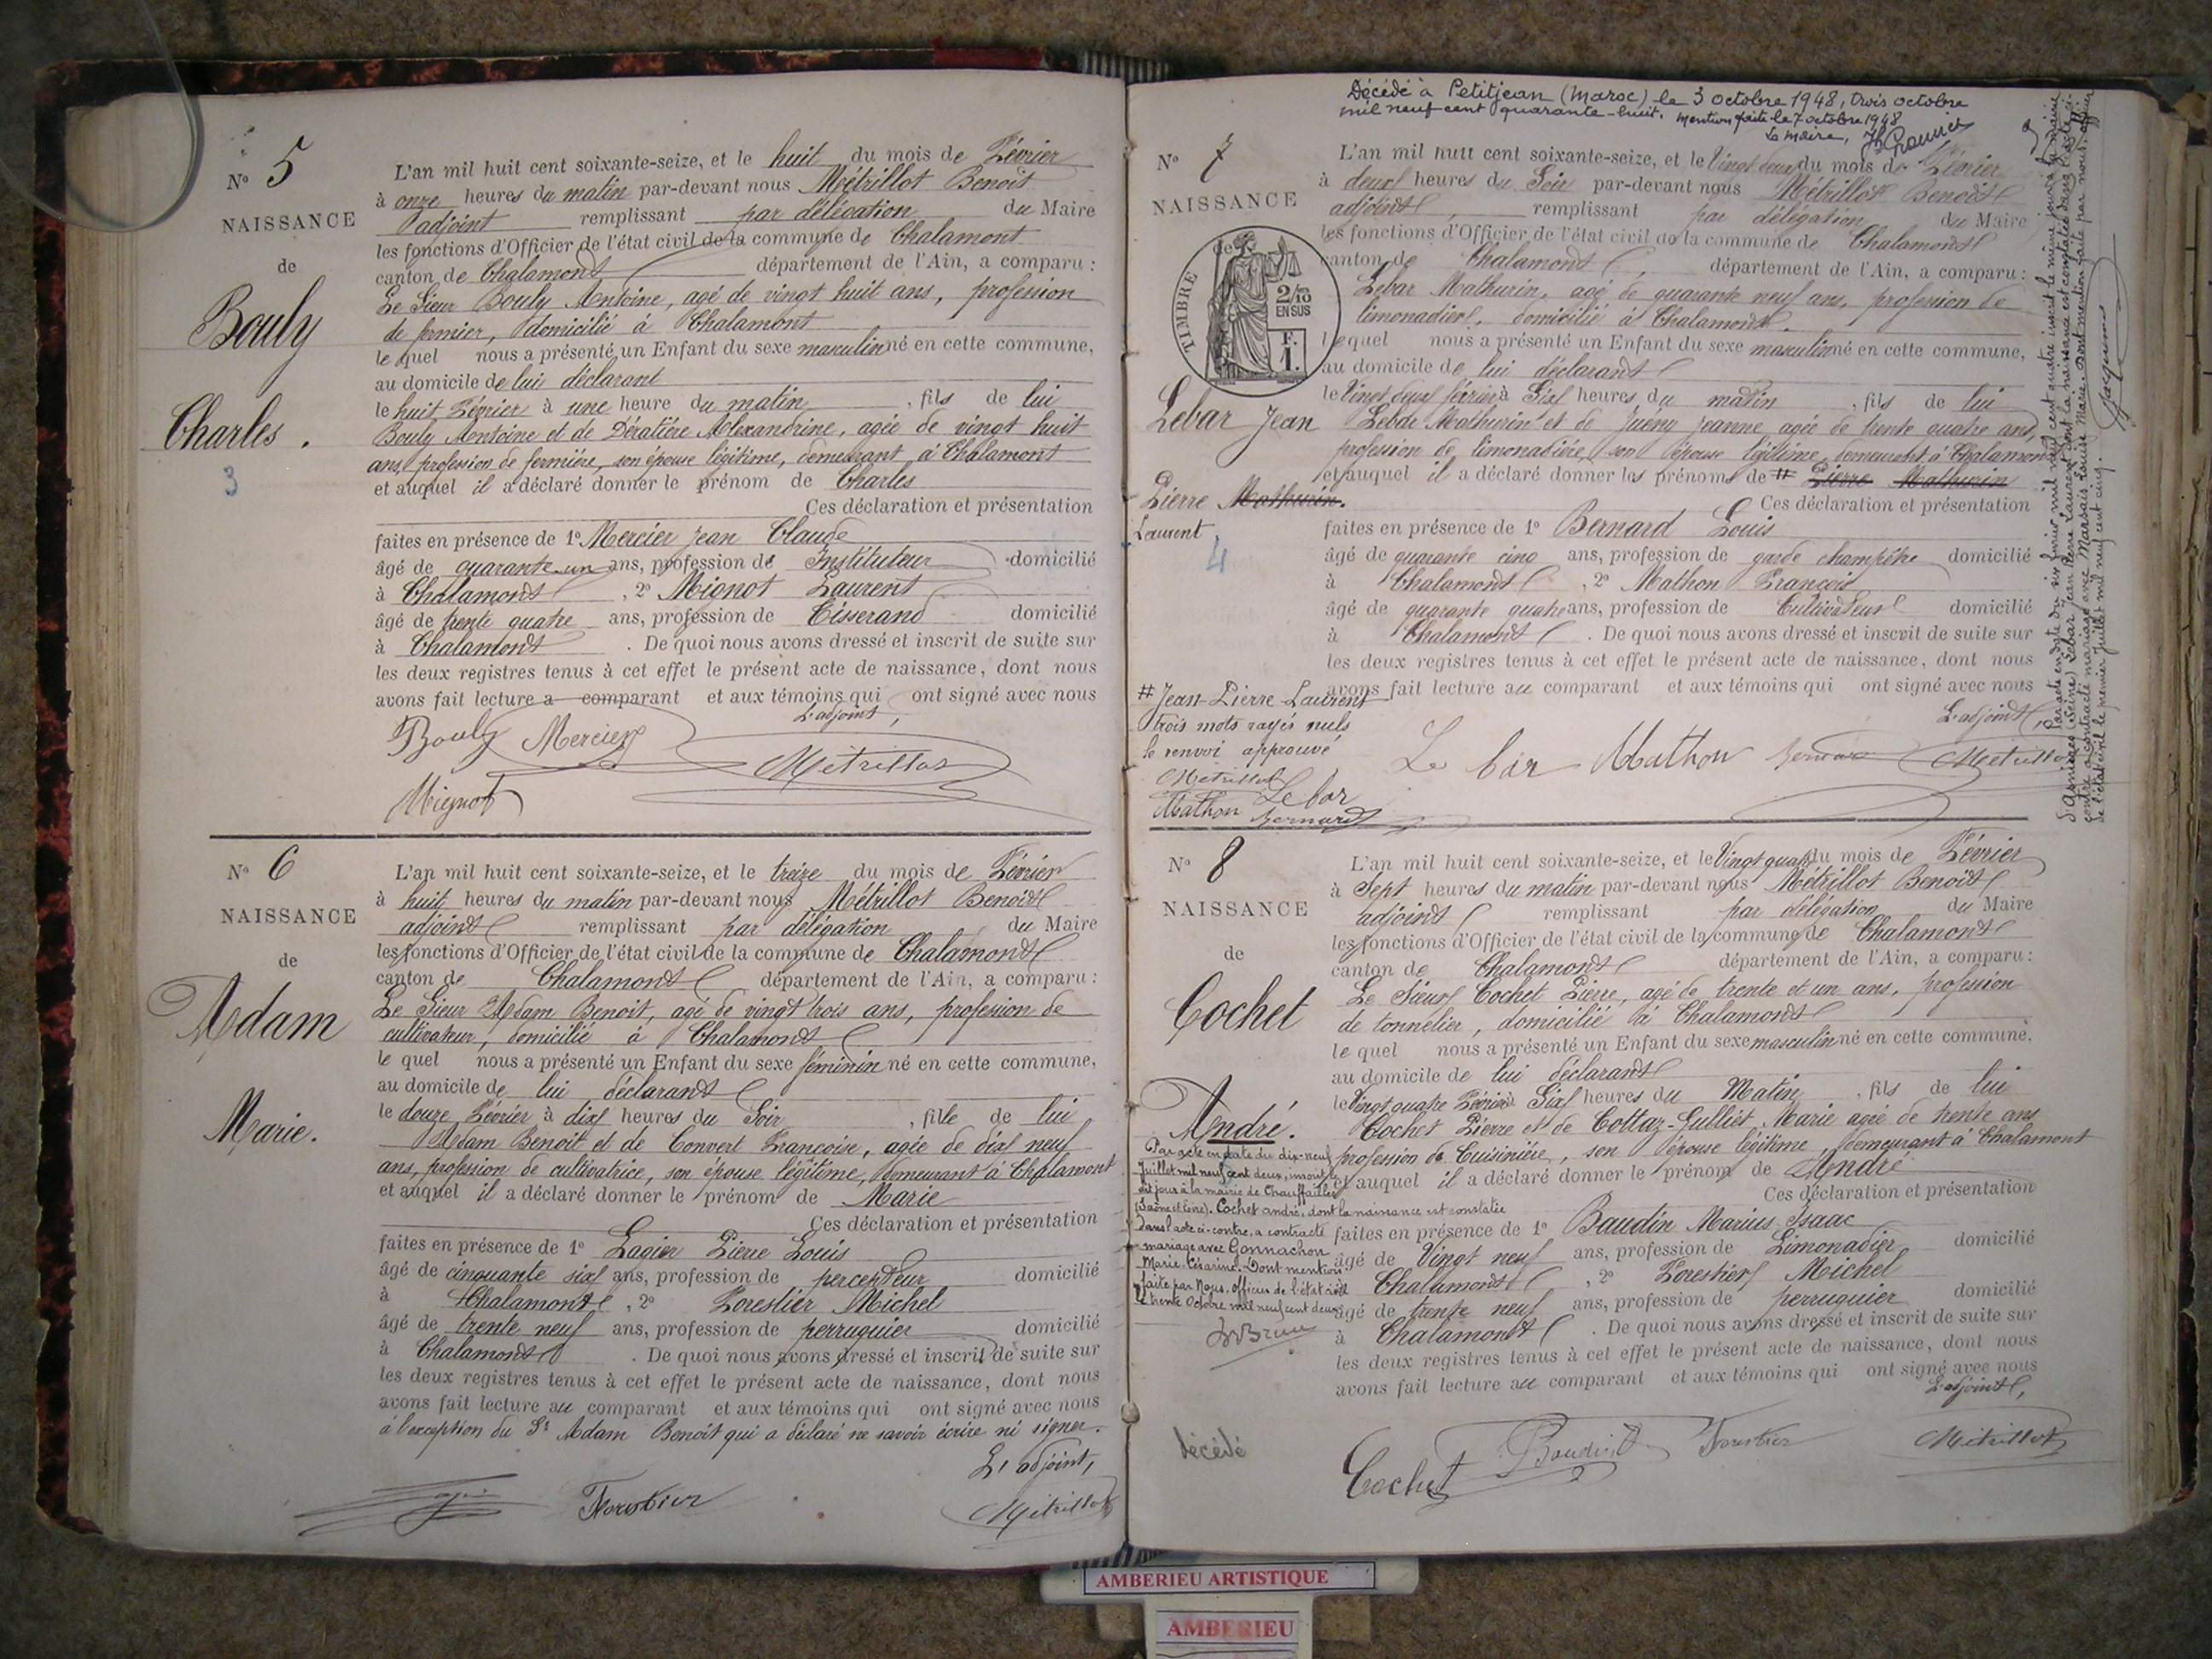 N° 5
NAISSANCE
de
Bouly
Charles.
3
L'an mil huit cent soixante-seize, et le huit du mois de Février
à onze heures du matin par-devant nous Métrillot Benoit
adjoint remplissant par délégation du Maire
les fonctions d'Officier de l'état civil de la commune de Chalamont
canton de Chalamont département de l'Ain, a comparu :
Le Sieur Bouly Antoine, agé de vingt huit ans, profession
de fermier, domicilié à Chalamont
le quel nous a présenté un Enfant du sexe masculin né en cette commune,
au domicile de lui déclarant
le huit Février à une heure du matin, fils de lui
Bouly Antoine et de Dératière Alexandrine, agée de vingt huit
ans, profession de fermière, son épouse légitime, demeurant à Chalamont
et auquel il a déclaré donner le prénom de Charles
Ces déclaration et présentation
faites en présence de 1° Mercier Jean Claude
âgé de quarante un ans, profession de Instituteur domicilié
à Chalamont, 2° Mignot Laurent
âgé de trente quatre ans, profession de Tisserand domicilié
à Chalamont. De quoi nous avons dressé et inscrit de suite sur
les deux registres tenus à cet effet le présent acte de naissance, dont nous
avons fait lecture a comparant et aux témoins qui ont signé avec nous
L'adjoint,
Bouly Mercier
Métrillot
Mignot
N° 6
NAISSANCE
de
Adam
Marie.
L'an mil huit cent soixante-seize, et le treize du mois de Février
à huit heures du matin par-devant nous Métrillot Benoit
adjoint remplissant par délégation du Maire
les fonctions d'Officier de l'état civil de la commune de Chalamont
canton de Chalamont département de l'Ain, a comparu :
Le Sieur Adam Benoit, agé de vingt trois ans, profession de
cultivateur, domicilié à Chalamont
le quel nous a présenté un Enfant du sexe féminin né en cette commune,
au domicile de lui déclarant
le douze Février à dix heures du Soir, fille de lui
Adam Benoit et de Convert Françoise, agée de dix neuf
ans, profession de cultivatrice, son épouse légitime, demeurant à Chalamont
et auquel il a déclaré donner le prénom de Marie
Ces déclaration et présentation
faites en présence de 1° Lagier Pierre Louis
âgé de cinquante six ans, profession de percepteur domicilié
à Chalamont, 2° Forestier Michel
âgé de trente neuf ans, profession de perruquier domicilié
à Chalamont. De quoi nous avons dressé et inscrit de suite sur
les deux registres tenus à cet effet le présent acte de naissance, dont nous
avons fait lecture au comparant et aux témoins qui ont signé avec nous
à l'exception du Sr Adam Benoit qui a déclaré ne savoir écrire ni signer.
L'adjoint,
Forestier
Métrillot
Décédé à Petitjean (Maroc) le 3 octobre 1948, trois octobre
mil neuf cent quarante-huit. Mention faite le 7 octobre 1948
Le Maire,
N° 7
NAISSANCE
TIMBRE
de
2/10
EN SUS
F.
1.
Lebar Jean
Pierre Mathurin.
Laurent
4
L'an mil huit cent soixante-seize, et le Vingt deux du mois de Février
à deux heures du Soir par-devant nous Métrillot Benoit
adjoint, remplissant par délégation du Maire
les fonctions d'Officier de l'état civil de la commune de Chalamont
canton de Chalamont, département de l'Ain, a comparu :
Lebar Mathurin, agé de quarante neuf ans, profession de
limonadier, domicilié à Chalamont.
lequel nous a présenté un Enfant du sexe masculin né en cette commune,
au domicile de lui déclarant
le Vingt deux février à Six heures du matin, fils de lui
Lebar Mathurin et de Juény Jeanne agée de trente quatre ans,
profession de limonadière, son épouse légitime, demeurant à Chalamont
et auquel il a déclaré donner les prénoms de # Pierre Mathurin
Ces déclaration et présentation
faites en présence de 1° Bernard Louis
âgé de quarante cinq ans, profession de garde champêtre domicilié
à Chalamont, 2° Mathon François
âgé de quarante quatre ans, profession de Cultivateur domicilié
à Chalamont. De quoi nous avons dressé et inscrit de suite sur
les deux registres tenus à cet effet le présent acte de naissance, dont nous
avons fait lecture au comparant et aux témoins qui ont signé avec nous
L'adjoint,
# Jean-Pierre-Laurent
trois mots rayés nuls
le renvoi approuvé
Métrillot
Lebar
Mathon Bernard
Le bar Mathon Bernard Métrillot
Par acte en date du dix janvier mil neuf cent quatre inscrit le même jour à la mairie
d'Asnières (Seine) Lebar Jean Pierre Laurent dont la naissance est constatée dans l'acte ci-
contre a contracté mariage avec Marsais Louise Marie. Dont mention faite par nous, officier
de l'état civil le premier juillet mil neuf cent cinq.
Jacquemin
N° 8
NAISSANCE
de
Cochet
André.
L'an mil huit cent soixante-seize, et le Vingt quatre du mois de Février
à Sept heures du matin par-devant nous Métrillot Benoit
adjoint remplissant par délégation du Maire
les fonctions d'Officier de l'état civil de la commune de Chalamont
canton de Chalamont département de l'Ain, a comparu :
Le Sieur Cochet Pierre, agé de trente et un ans, profession
de tonnelier, domicilié à Chalamont
le quel nous a présenté un Enfant du sexe masculin né en cette commune,
au domicile de lui déclarant
le Vingt quatre Février à Six heures du Matin, fils de lui
Cochet Pierre et de Cottaz-Gulliet Marie agée de trente ans
profession de Cuisinière, son épouse légitime demeurant à Chalamont
et auquel il a déclaré donner le prénom de André
Ces déclaration et présentation
faites en présence de 1° Baudin Marius Isaac
âgé de Vingt neuf ans, profession de Limonadier domicilié
à Chalamont, 2° Forestier Michel
âgé de trente neuf ans, profession de perruquier domicilié
à Chalamont. De quoi nous avons dressé et inscrit de suite sur
les deux registres tenus à cet effet le présent acte de naissance, dont nous
avons fait lecture au comparant et aux témoins qui ont signé avec nous
L'adjoint,
Par acte en date du dix-neuf
Juillet mil neuf cent deux, inscrit le
dit jour à la mairie de Chauffailles
(Saône et Loire). Cochet André, dont la naissance est constatée
dans l'acte ci-contre, a contracté
mariage avec Gonnachon
Marie Césarine. Dont mention
faite par Nous, officier de l'état civil
le trente Octobre mil neuf cent deux.
décédé
Cochet Baudin Forestier Métrillot
AMBERIEU ARTISTIQUE
AMBERIEU